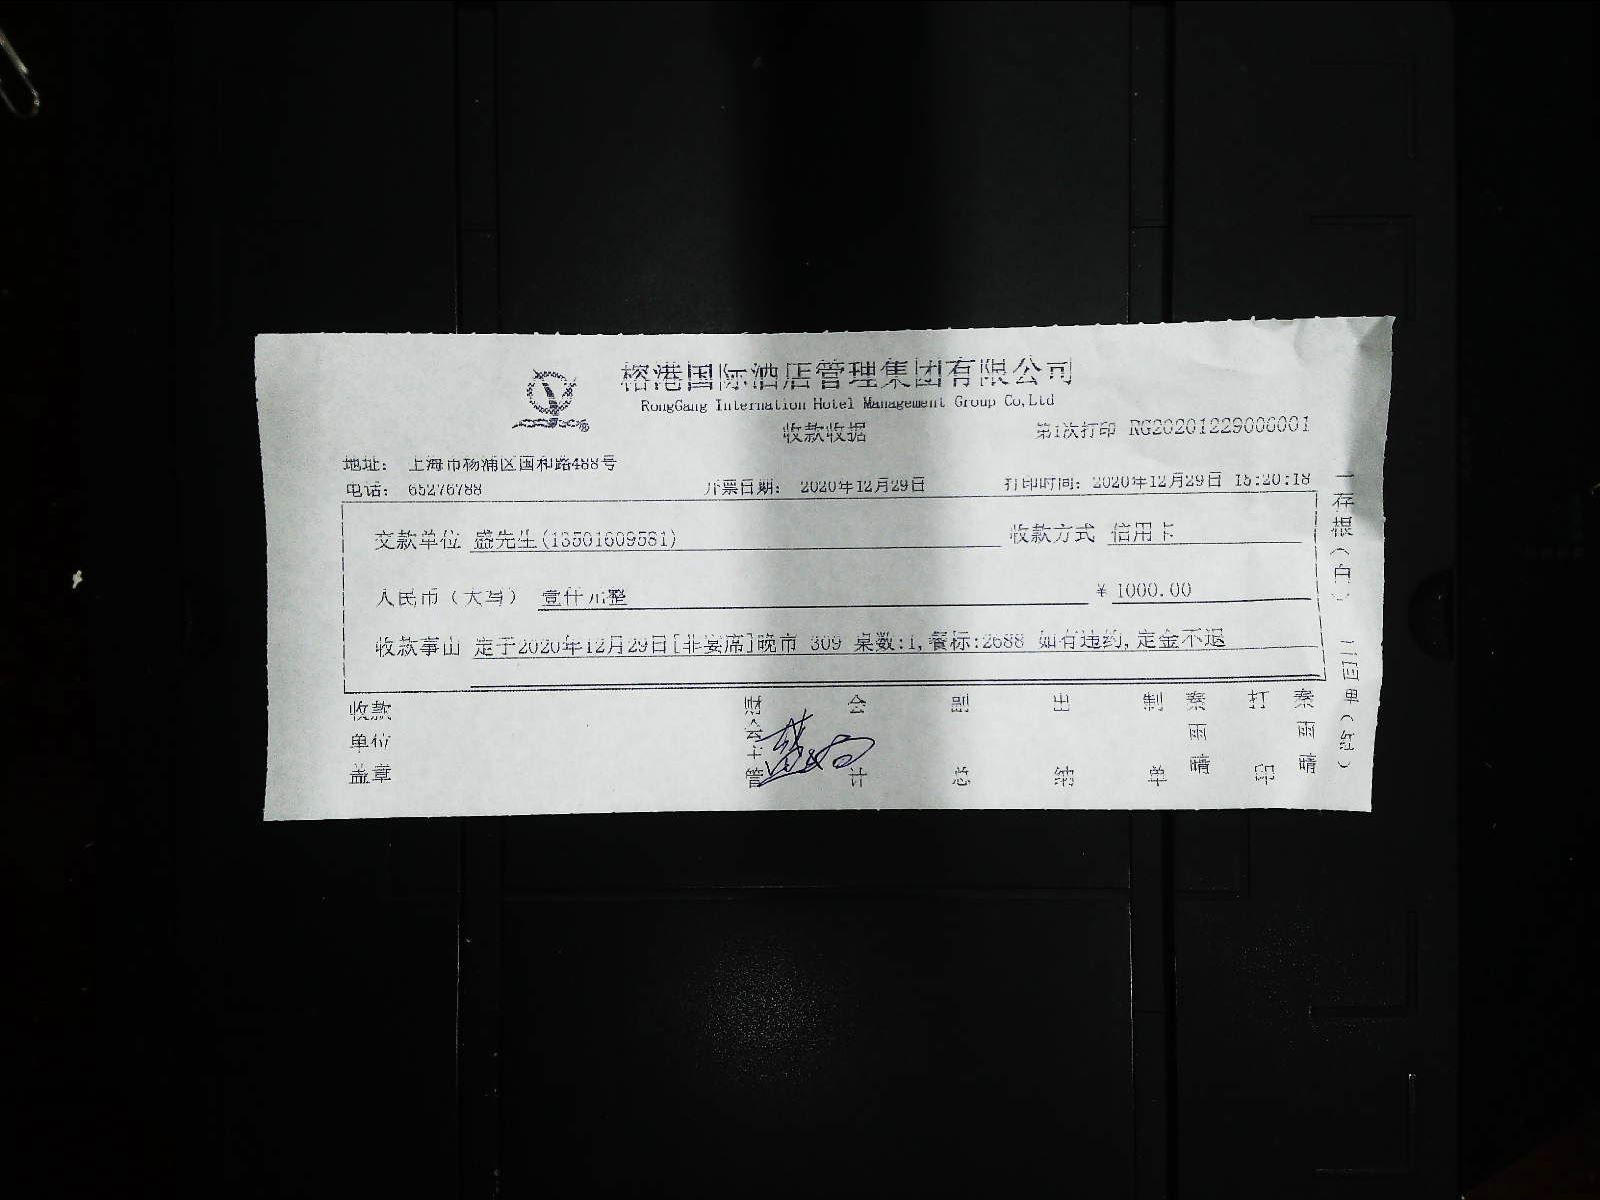 榕港国际酒店管理集团有限公司
RongGang Internation Hotel Management Group Co,Ltd
收款收据
第1次打印 RG20201229000001
地址: 上海市杨浦区国和路488号
电话: 65276788 开票日期: 2020年12月29日 打印时间: 2020年12月29日 15:20:18
交款单位 盛先生(13501609581) 收款方式 信用卡
人民币(大写) 壹仟元整 ¥ 1000.00
收款事由 定于2020年12月29日[非宴席]晚市 309 桌数:1,餐标:2688 如有违约,定金不退
收款单位盖章 财会主管 会计 副总 出纳 制单 秦雨晴 打印 秦雨晴
一存根(白) 二回单(红)